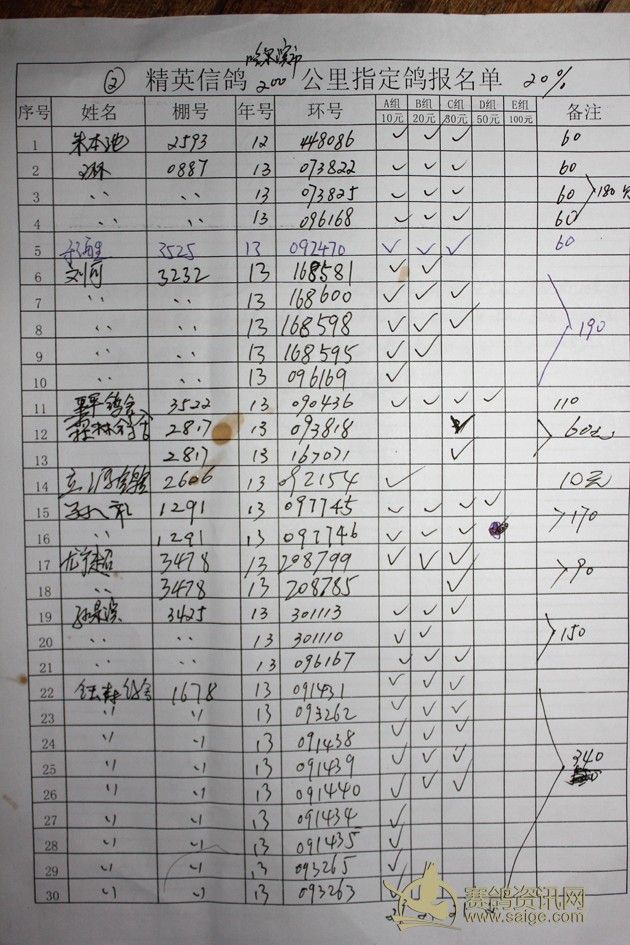 哈尔滨市
② 精英信鸽 200 公里指定鸽报名单 20%
序号 姓名 棚号 年号 环号 A组 10元 B组 20元 C组 30元 D组 50元 E组 100元 备注
1 朱本池 2593 12 448086 ✓ ✓ ✓ 60
2 0887 13 073822 ✓ ✓ ✓ 60
3 〃 〃 13 073825 ✓ ✓ ✓ 60 180元
4 〃 〃 13 096168 ✓ ✓ ✓ 60
5 3525 13 092470 ✓ ✓ ✓ 60
6 刘可 3232 13 168581 ✓ ✓
7 〃 〃 13 168600 ✓ ✓ ✓
8 〃 〃 13 168598 ✓ ✓ ✓ 190
9 〃 〃 13 168595 ✓ ✓
10 〃 〃 13 096169 ✓
11 3522 13 090436 ✓ ✓ ✓ ✓ 110
12 2817 13 093818 ✓ 60元
13 2817 13 167071 ✓
14 2606 13 092154 ✓ 10元
15 1291 13 097745 ✓ ✓ ✓ ✓ 170
16 〃 1291 13 097746 ✓ ✓ ✓
17 3478 13 208799 ✓ ✓ ✓ 90
18 〃 3478 13 208785 ✓
19 3425 13 301113 ✓ ✓ ✓
20 〃 〃 13 301110 ✓ ✓ 150
21 〃 〃 13 096167 ✓ ✓ ✓
22 1678 13 091431 ✓ ✓ ✓
23 〃 〃 13 093262 ✓ ✓ ✓
24 〃 〃 13 091438 ✓ ✓ ✓
25 〃 〃 13 091439 ✓ ✓ ✓ 340
26 〃 〃 13 091440 ✓ ✓ ✓
27 〃 〃 13 091434 ✓
28 〃 〃 13 091435 ✓
29 〃 〃 13 093265 ✓
30 〃 〃 13 093263 ✓
赛鸽资讯网
www.saige.com